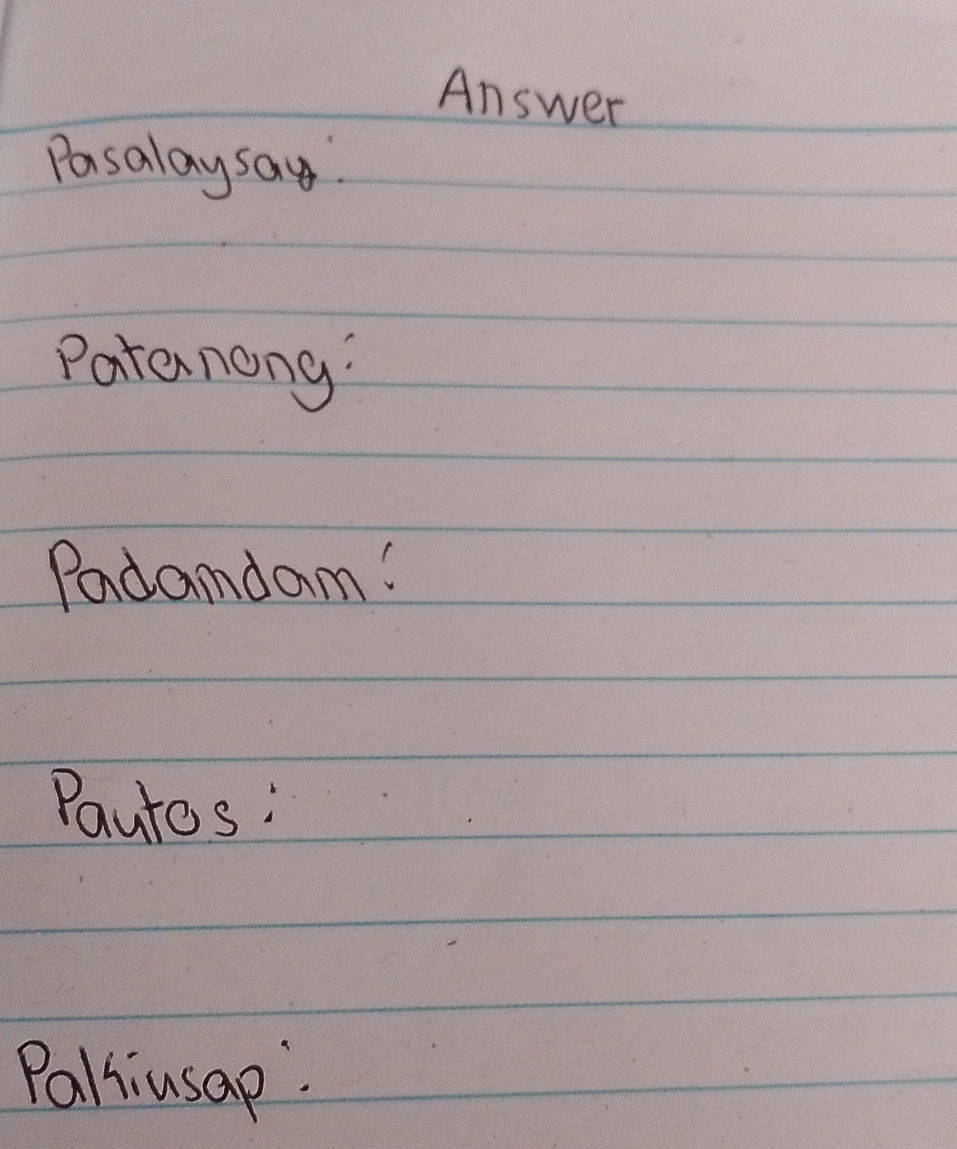 Answer
Pasalaysay:
Patanong:
Padamdam:
Pautos:
Pakiusap: